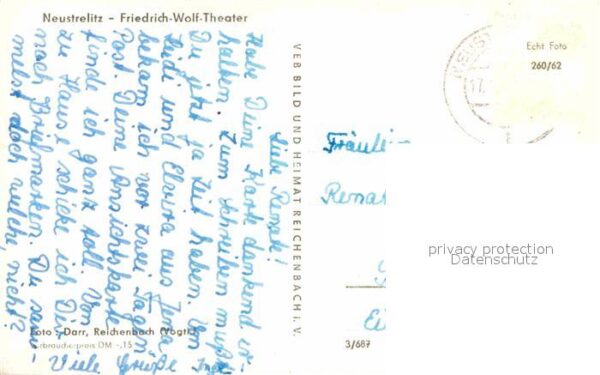 Neustrelitz – Friedrich-Wolf-Theater
Echt Foto
260/62
17.
Liebe Renate!
Habe Deine Karte dankend er-
halten. Zum schreiben mußt
Du jetzt ja Zeit haben. Von
Heidi und Elvira aus Jena
bekam ich vor zwei Tagen
Post. Deine Ansichtskarte
finde ich ganz toll. Von
zu Hause schicke ich Dir
noch Briefmarken. Du sam-
melst doch welche, nicht?
Viele Grüße
VEB BILD UND HEIMAT REICHENBACH i. V.
Fräulei
Renat
Ei
privacy protection
Datenschutz
Foto: Darr, Reichenbach (Vogtl.)
Verbraucherpreis DM –,15
3/687